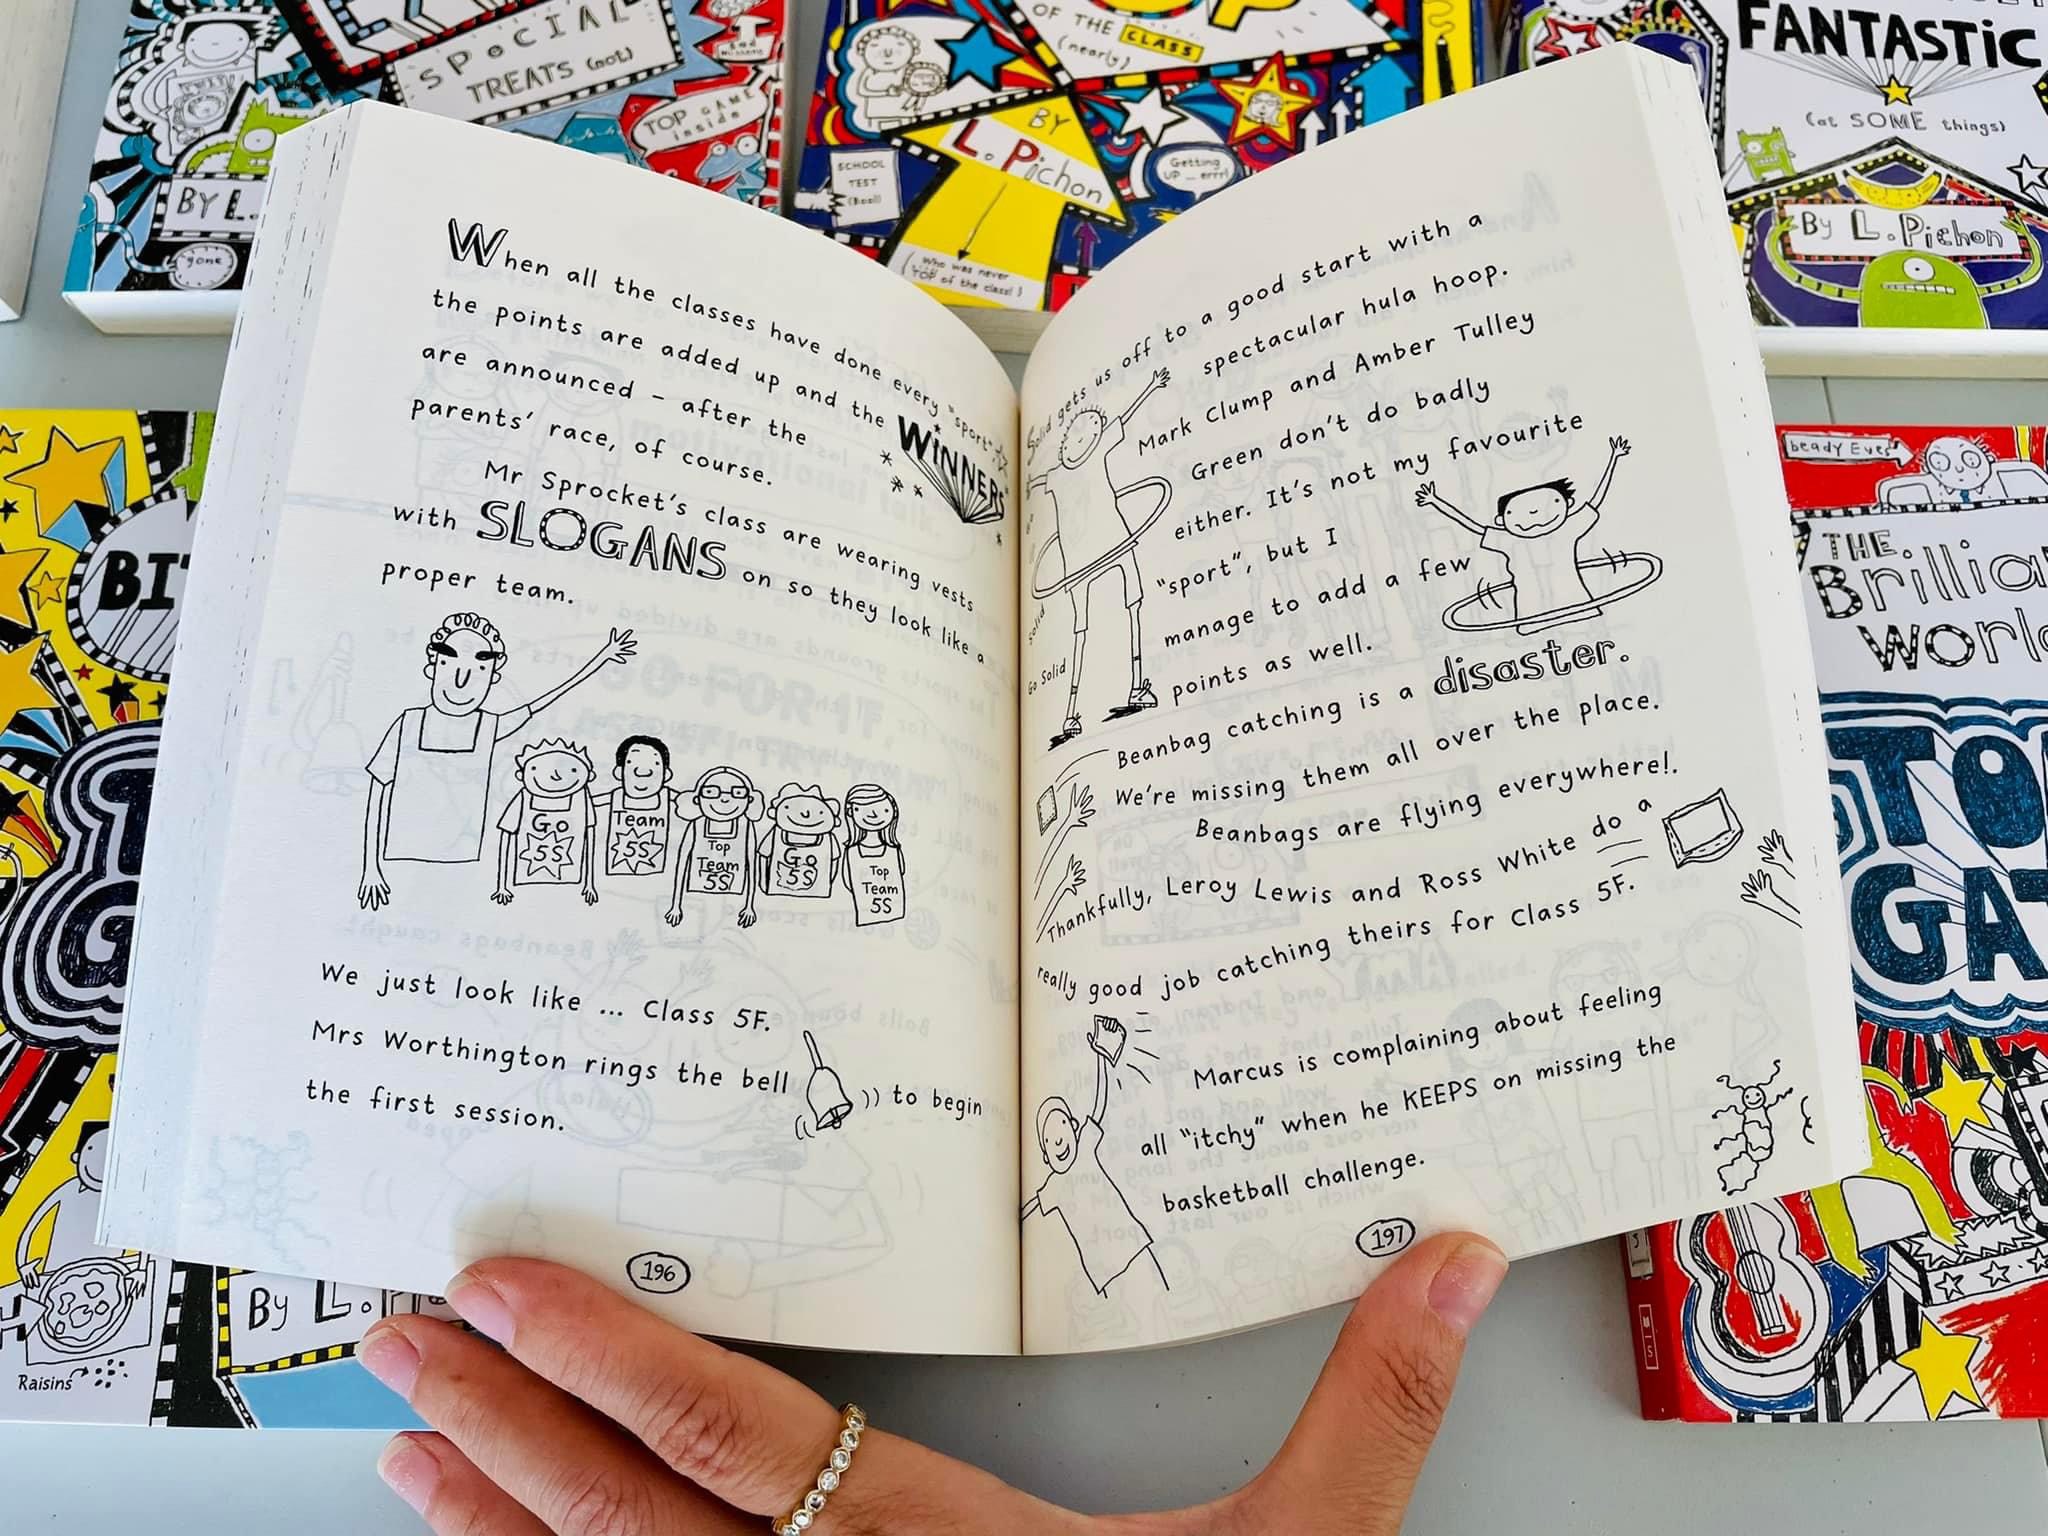 SPECIAL
TREATS (not)
TOP GAME
inside
BY L.
gone
OF THE CLASS
(nearly)
BY
L. Pichon
SCHOOL
TEST
(Boo!)
Getting
UP - errr!
(Who was never
TOP of the class!)
FANTASTIC
(at SOME things)
By L. Pichon
When all the classes have done every "sport"
the points are added up and the WINNERS
are announced – after the
parents' race, of course.
Mr Sprocket's class are wearing vests
with SLOGANS on so they look like a
proper team.
Go
5S
Team
5S
Top
Team
5S
Go
5S
Top
Team
5S
We just look like ... Class 5F.
Mrs Worthington rings the bell to begin
the first session.
196
Solid gets us off to a good start with a
spectacular hula hoop.
Mark Clump and Amber Tulley
Green don't do badly
either. It's not my favourite
"sport", but I
manage to add a few
points as well.
Solid
Go Solid
Beanbag catching is a disaster.
We're missing them all over the place.
Beanbags are flying everywhere!.
Thankfully, Leroy Lewis and Ross White do a
really good job catching theirs for Class 5F.
Marcus is complaining about feeling
all "itchy" when he KEEPS on missing the
basketball challenge.
197
By L.
Raisins
beady Eyes
THE
Brillia
world
TO
GAT